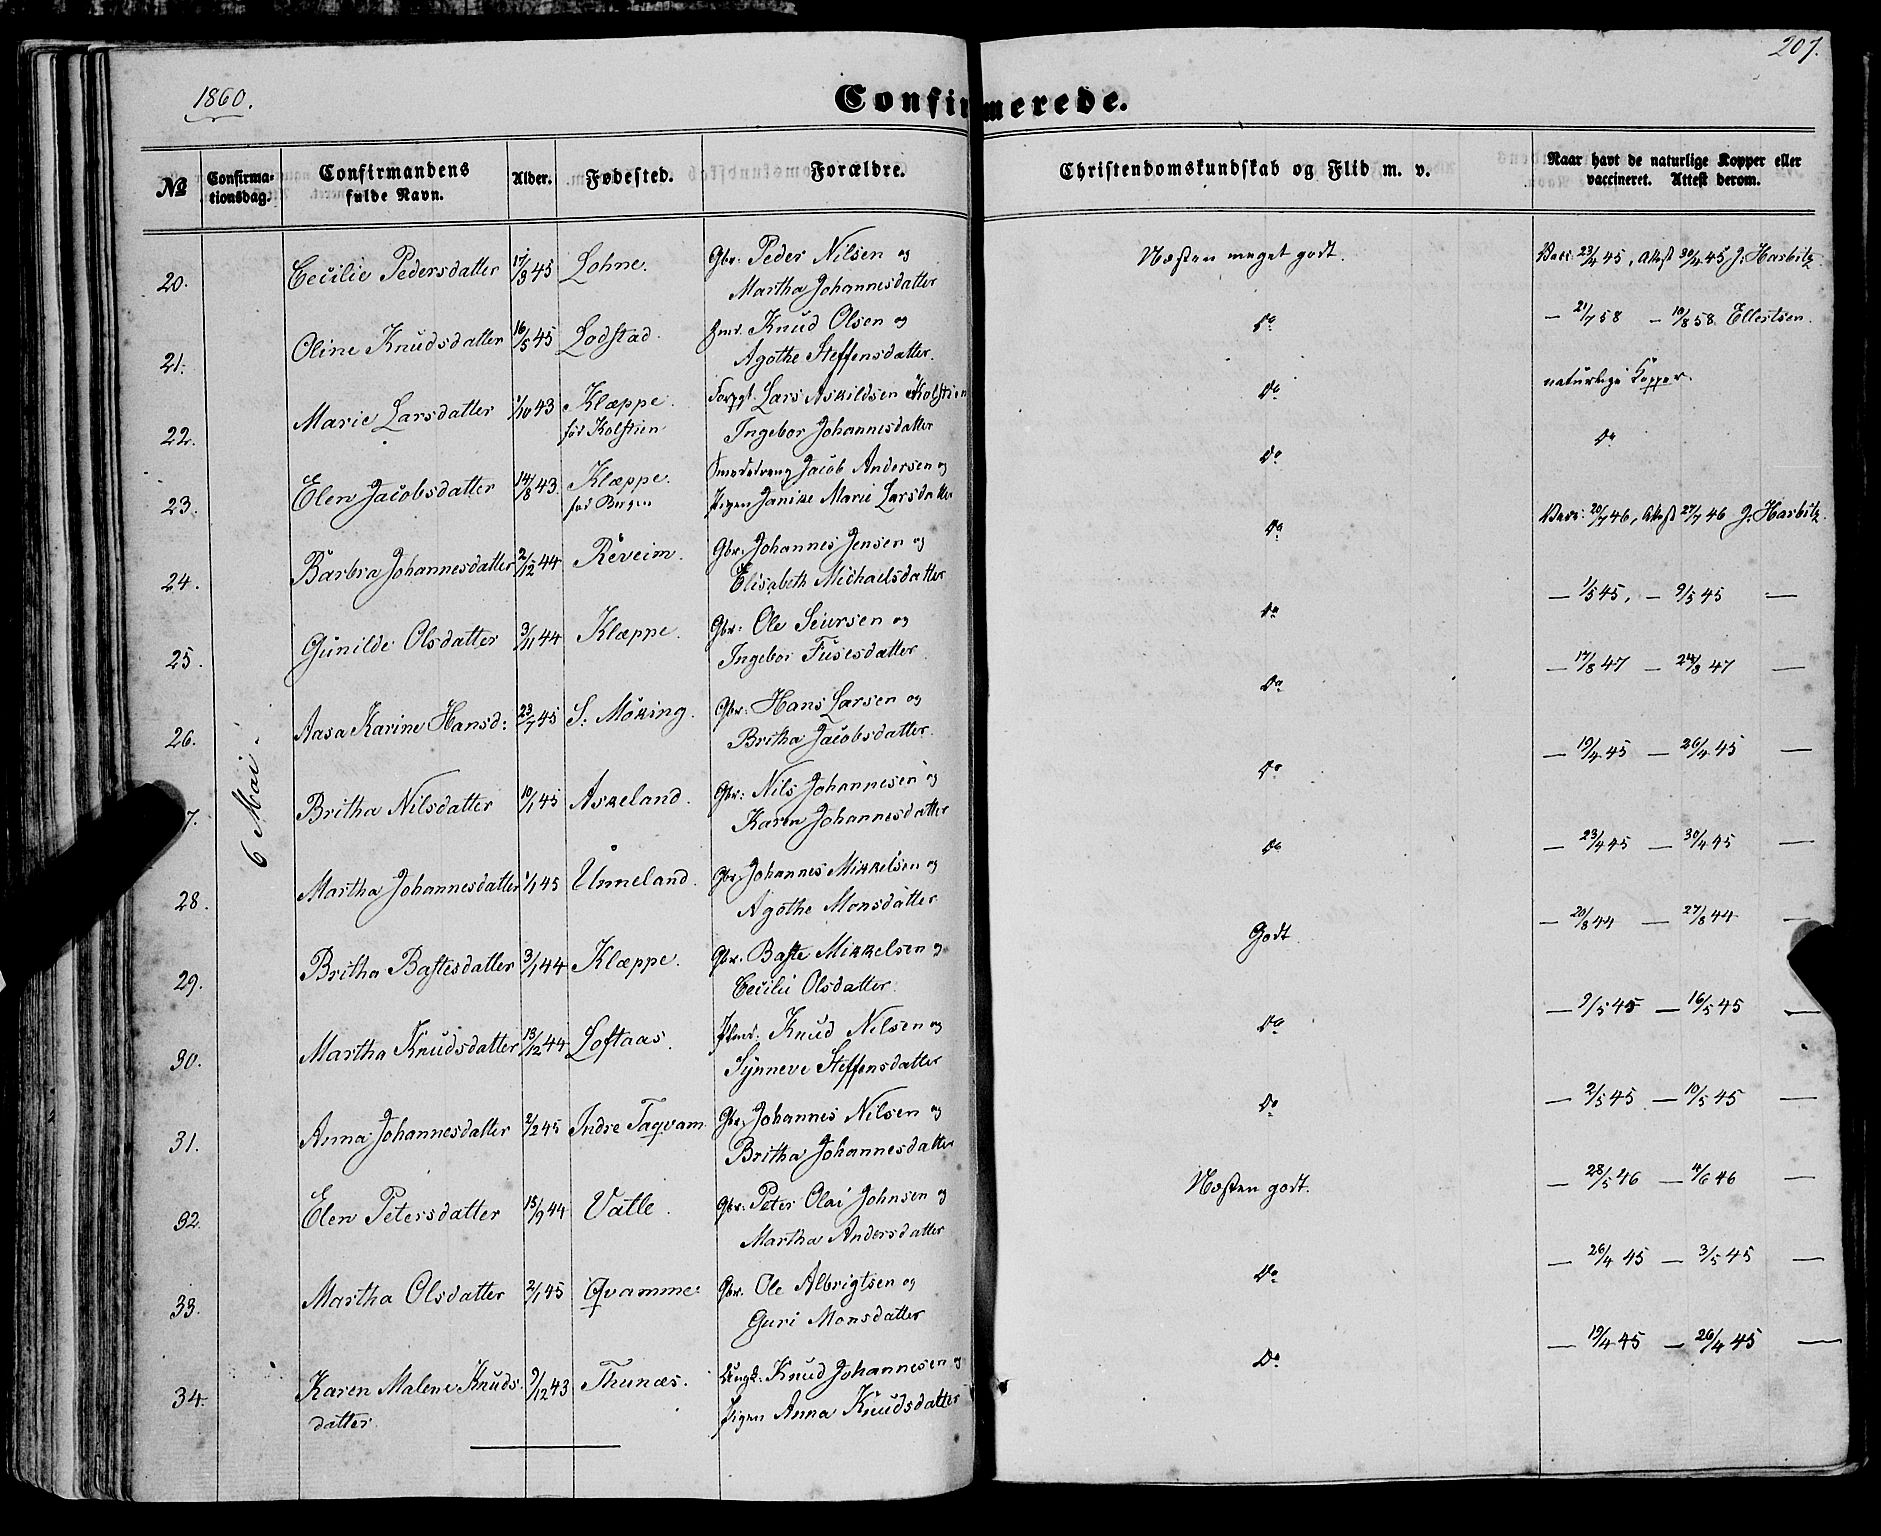 1860.
207.
Confirmerede.
No Confirmationsdag. Confirmandens fulde Navn. Alder. Fødested. Forældre. Christendomskundskab og Flid m. v. Naar havt de naturlige Kopper eller vaccineret. Attest derom.
6 Mai.
20. Cecilie Pedersdatter 17/3 45 Lohne. Gbr: Peder Nilsen og Næsten meget godt. Vacc: 23/4 45, Attest 30/4 45 J. Harbitz
Martha Johannesdatter
21. Oline Knudsdatter 16/5 45 Lodstad. Knud Olsen og Do — 21/7 58 — 10/8 58 Ellertsen.
Agothe Steffensdatter.
22. Marie Larsdatter 1/10 43 Klæppe. Forpgt. Lars Askildsen Kolstien Do naturlige Kopper.
før Kolstien Ingebor Johannesdatter
23. Elen Jacobsdatter 14/8 43. Klæppe. Jacob Andersen og Do Do
før Bergen Pigen Janike Marie Larsdatter
24. Barbra Johannesdatter 2/12 44 Reveim. Gbr: Johannes Jensen og Do Vacc: 20/7 46, Attest 27/7 46 J. Harbitz.
Elisabeth Michaelsdatter
25. Gunilde Olsdatter 3/11 44 Klæppe. Gbr: Ole Seursen og Do — 1/5 45, — 9/5 45 —
Ingebor Fusesdatter
26. Aasa Karine Hansd: 23/7 45 S: Möking. Gbr: Hans Larsen og Do — 17/8 47 — 24/8 47 —
Britha Jacobsdatter.
7. Britha Nilsdatter 10/1 45 Askeland. Gbr: Nils Johannesen og Do — 19/4 45 — 26/4 45 —
Karen Johannesdatter
28. Martha Johannesdatter 1/1 45 Unneland. Gbr: Johannes Mikkelsen og Do — 23/4 45 — 30/4 45 —
Agothe Monsdatter
29. Britha Bastesdatter 3/1 44 Klæppe. Gbr. Baste Mikkelsen og Godt. — 20/8 44 — 27/8 44 —
Cecilie Olsdatter.
30. Martha Knudsdatter 13/12 44 Loftaas. Knud Nilsen og Do — 9/5 45 — 16/5 45 —
Synneve Steffensdatter
31. Anna Johannesdatter 2/2 45 Indre Taqvam. Gbr: Johannes Nilsen og Do — 2/5 45 — 10/5 45 —
Britha Johannesdatter
32. Elen Petersdatter 18/9 44 Valle. Gbr: Peter Olai Johnsen og Næsten godt. — 28/5 46 — 4/6 46 —
Martha Andersdatter
33. Martha Olsdatter 2/1 45 Qvamme. Gbr. Ole Albrigtsen og Do — 26/4 45 — 3/5 45 —
Guri Monsdatter
34. Karen Malene Knuds 9/12 43 Thunæs. Ungk. Knud Johannesen og Do — 19/4 45 — 26/4 45 —
datter. Pigen Anna Knudsdatter